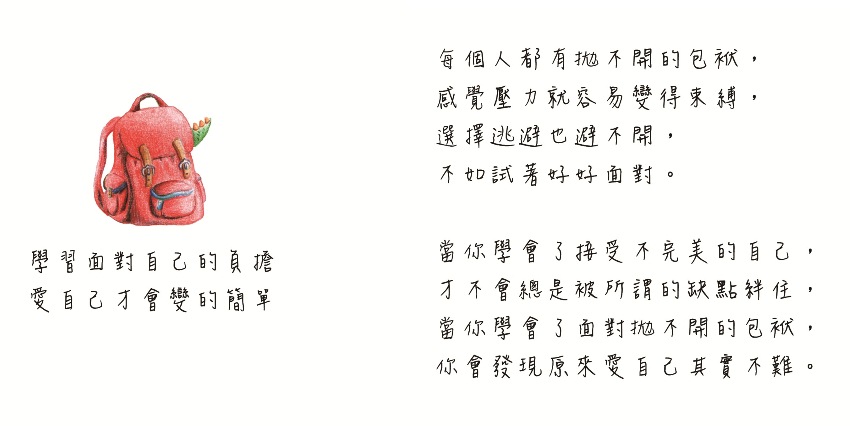 學習面對自己的負擔
愛自己才會變的簡單
每個人都有拋不開的包袱，
感覺壓力就容易變得束縛，
選擇逃避也避不開，
不如試著好好面對。
當你學會了接受不完美的自己，
才不會總是被所謂的缺點絆住，
當你學會了面對拋不開的包袱，
你會發現原來愛自己其實不難。